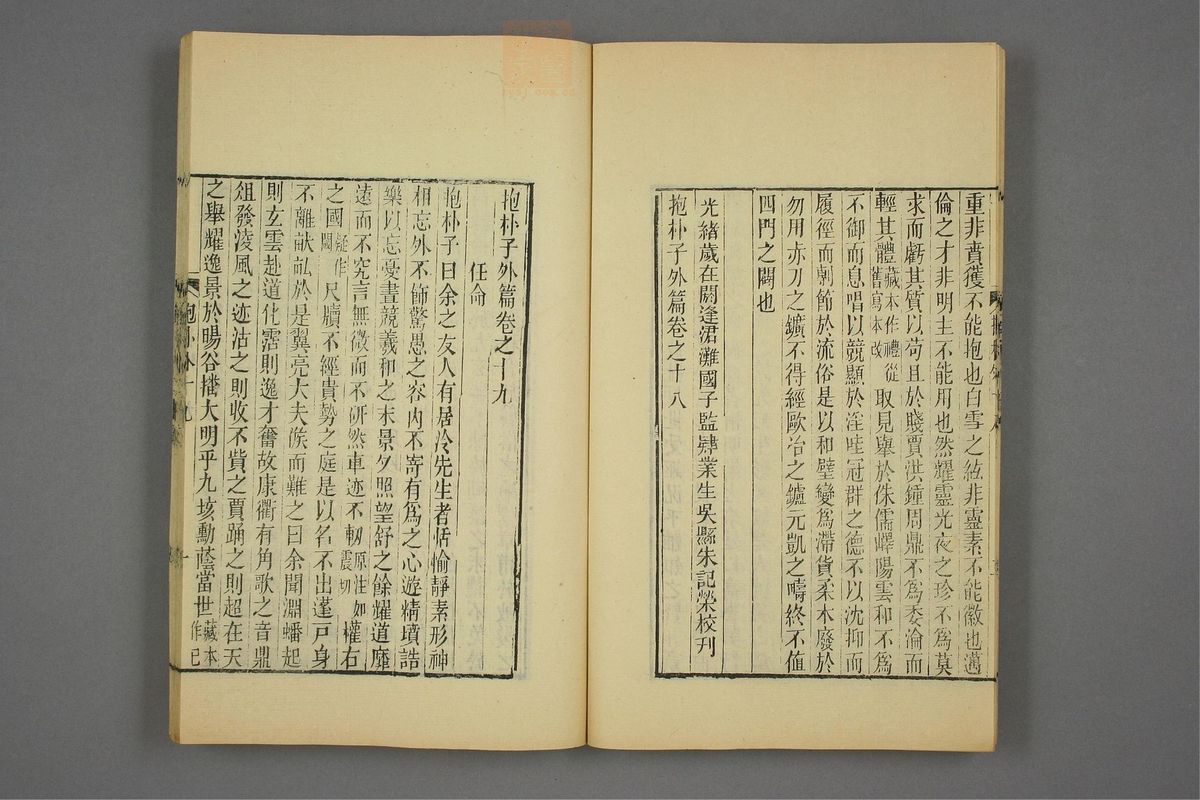 重非賁獲不能抱也白雪之絃非靈素不能徽也邁
倫之才非明主不能用也然耀靈光夜之珍不爲莫
求而虧其質以苟且於賤賈洪鐘周鼎不爲委淪而
輕其體藏本作禮從舊寫本改取見舉於侏儒嶧陽雲和不爲
不御而息唱以競顯於淫哇冠群之德不以沈抑而
履徑而剸節於流俗是以和璧變爲滯貨柔木廢於
勿用赤刀之鑛不得經歐冶之鑪元凱之疇終不值
四門之闢也
光緒歲在閼逢涒灘國子監肄業生吳縣朱記榮校刊
抱朴子外篇卷之十八
抱朴子外篇卷之十九
任命
抱朴子曰余之友人有居泠先生者恬愉靜素形神
相忘外不飾驚愚之容內不寄有爲之心遊精墳誥
樂以忘憂晝競羲和之末景夕照望舒之餘耀道靡
遠而不究言無微而不研然車迹不軔原注如震切權右
之國疑作閫尺牘不經貴勢之庭是以名不出蓬戸身
不離畎畝於是翼亮大夫候而難之曰余聞淵蟠起
則玄雲赴道化霑則逸才奮故康衢有角歌之音鼎
俎發淩風之迹沽之則收不貲之賈踊之則超在天
之舉耀逸景於暘谷播大明乎九垓勳蔭當世藏本作已
抱朴外十九